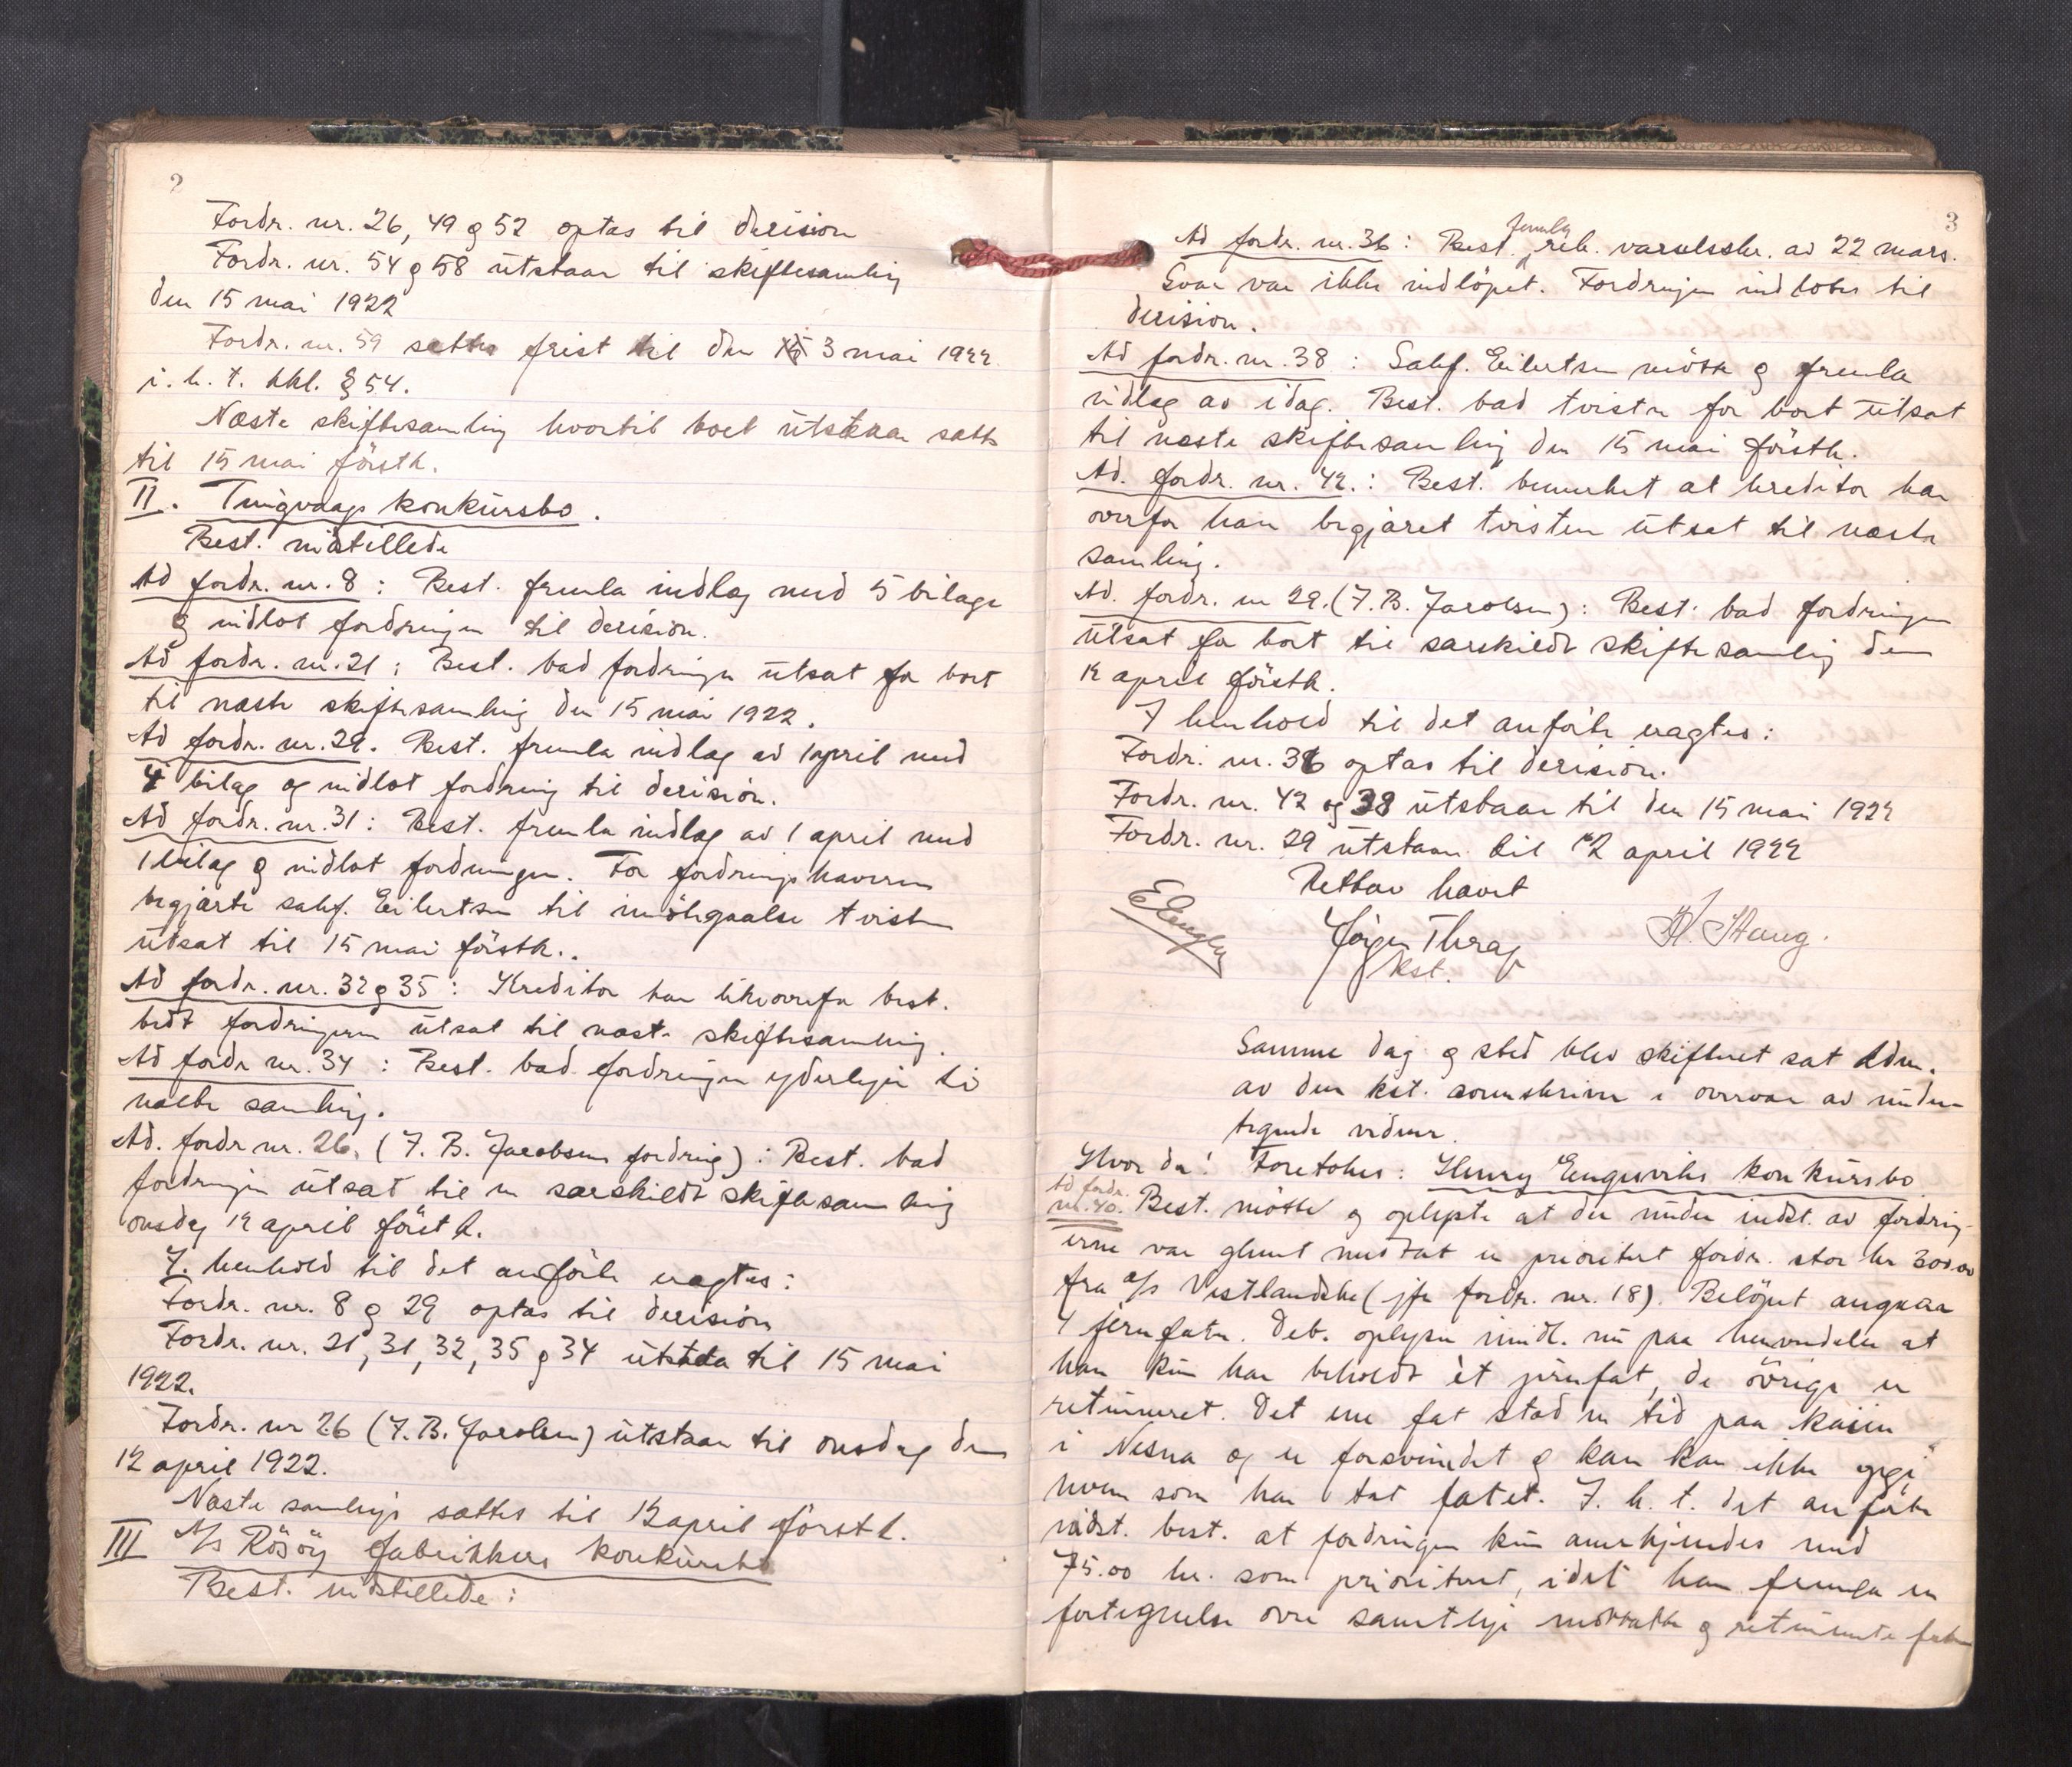 2
Fordr. nr. 26, 49 og 52 optas til decision
Fordr. nr. 54 og 58 utstaar til skiftesamling
den 15 mai 1922
Fordr. nr. 59 sættes frist til den 3 mai 1922
i. h. t. kkl. § 54.
Næste skiftesamling hvortil boet utstaar sættes
til 15 mai førstk.
II. Tuigvaags konkursbo.
Best. indstillede
Ad fordr. nr. 8: Best. fremla indlæg med 5 bilage
og indlot fordringen til decision.
Ad fordr. nr. 21: Best. bad fordringen utsat for bort
til næste skiftesamling den 15 mai 1922.
Ad fordr. nr. 29. Best. fremla indlæg av 1 april med
4 bilag og indlot fordring til decision.
Ad fordr. nr. 31: Best. fremla indlæg av 1 april med
1 bilag og indlot fordringen. For fordringshaveren
begjærte sakf. Eilertsen til imøtegaaelse tvisten
utsat til 15 mai førstk..
Ad fordr. nr. 32 og 35: Kreditor har likeoverfor best.
bedt fordringerne utsat til næste skiftesamling.
Ad fordr nr. 34: Best. bad fordringen yderligere til
næste samling.
Ad. fordr nr. 26. (J. B. Jacobsens fordring): Best. bad
fordringen utsat til en særskildt skiftesamling
onsdag 12 april førstk.
I henhold til det anførte eragtes:
Fordr. nr. 8 og 29 optas til decision
Fordr. nr. 21, 31, 32, 35 og 34 utstaa til 15 mai
1922.
Fordr. nr 26 (J. B. Jacobsen) utstaar til onsdag den
12 april 1922.
Næste samling sættes til 12 april førstk.
III A/s Røsøy fabrikkers konkursbo
Best. indstillede:
3
Ad fordr. nr. 36: Best. fremla rek. varselsskr. av 22 mars.
Svar var ikke indløpet. Fordringen indlotes til
decision.
Ad fordr. nr. 38: Sakf. Eilertsen møtte og fremla
indlæg av idag. Best. bad tvisten for bort utsat
til næste skiftesamling den 15 mai førstk.
Ad. fordr. nr. 42.: Best. bemerket at kreditor har
overfor ham begjæret tvisten utsat til næste
samling.
Ad. fordr. nr 29. (J. B. Jacobsen): Best. bad fordringen
utsat for bort til særskildt skiftesamling den
12 april førstk.
I henhold til det anførte eragtes:
Fordr. nr. 36 optas til decision.
Fordr. nr. 42 og 38 utstaar til den 15 mai 1922
Fordr. nr. 29 utstaar til 12 april 1922
Retten hævet
Jørgen Thrap
kst.
H. Haug.
Samme dag og sted blev skifteret sat adm.
av den kst. sorenskriver i overvær av under-
tegnede vidner.
Hvor da! Foretokes: Henry Engesviks konkursbo
Ad fordr. nr. 40. Best. møtte og oplyste at der under indst. av fordring-
erne var glemt medtat en prioritert fordr. stor kr 300.00
fra A/s Vestlandske (jfr fordr. nr. 18). Beløpet angaar
4 jernfater. Deb. oplyser imidl. nu paa henvendelse at
han kun har beholdt ét jernfat, de øvrige er
returneret. Det ene fat stod en tid paa kaien
i Nesna og er forsvundet og han kan ikke opgi
hvem som har tat fatet. I. h. t. det anførte
indst. best. at fordringen kun anerkjendes med
75.00 kr. som prioritert, idet han fremla en
fortegnelse over samtlige mottatte og returnerte fater